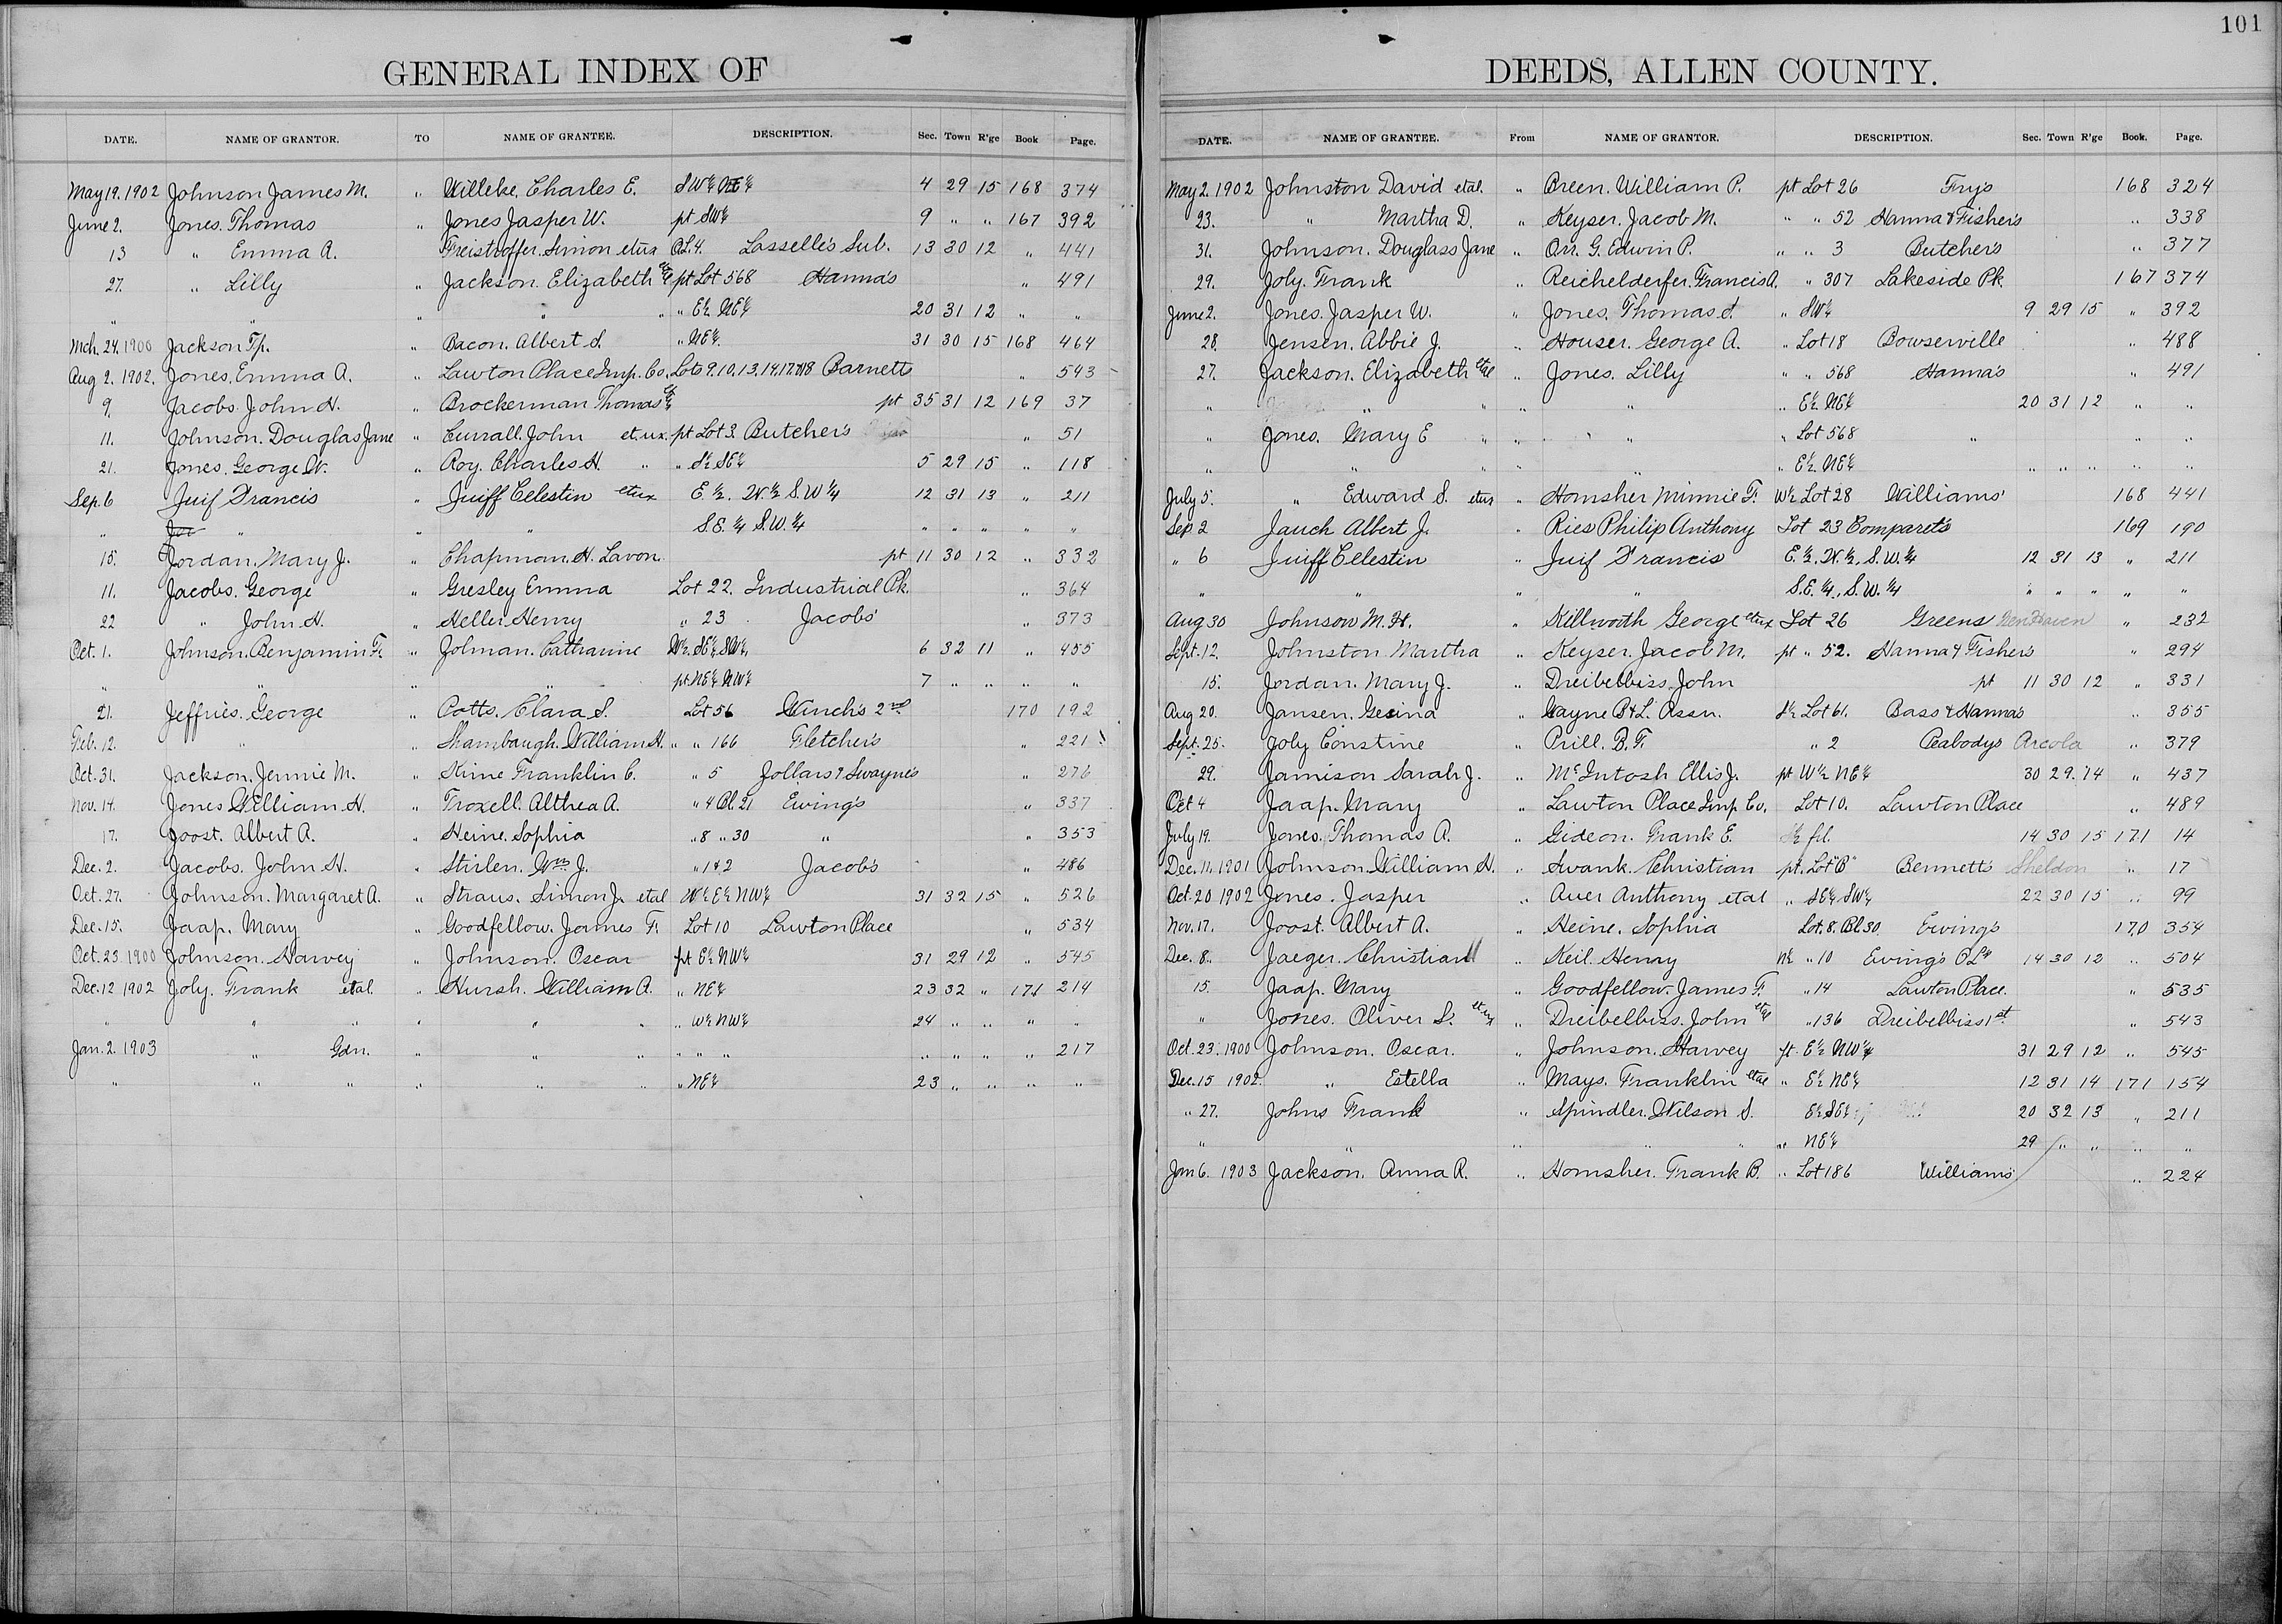 GENERAL INDEX OF
DATE. NAME OF GRANTOR. TO NAME OF GRANTEE. DESCRIPTION. Sec. Town R'ge Book Page.
May 19. 1902 Johnson James M. " Willeke, Charles E. SW¼ NE¼ 4 29 15 168 374
June 2. Jones. Thomas " Jones Jasper W. pt SW¼ 9 " " 167 392
13 " Emma A. " Freistroffer. Simon etux OL. 4. Lasselle's Sub. 13 30 12 " 441
27. " Lilly " Jackson. Elizabeth et al pt Lot 568 Hanna's " 491
" " " " " " E½ NE¼ 20 31 12 " "
Mch. 24. 1900 Jackson Tp. " Bacon. Albert S. " NE¼. 31 30 15 168 464
Aug 2. 1902. Jones. Emma A. " Lawton Place Imp. Co. Lots 9.10.13.14.17.&18 Barnett " 543
9. Jacobs. John H. " Brockerman Thomas pt 35 31 12 169 37
11. Johnson. Douglas Jane " Currall. John et ux. pt Lot 3. Butcher's " 51
21. Jones. George W. " Roy. Charles H. " " S½ SE¼ 5 29 15 " 118
Sep. 6 Juif Francis " Juiff Celestin etux E. ½. W. ½ S. W ¼ 12 31 13 " 211
" " " " S. E. ¼ S. W. ¼ " " " " "
15. Jordan. Mary J. " Chapman. H. Lavon. pt 11 30 12 " 332
11. Jacobs. George " Gresley Emma Lot 22. Industrial Pk. " 364
22 " John H. " Heller Henry " 23 Jacobs' " 373
Oct. 1. Johnson. Benjamin F. " Jolman. Catharine W½. SE¼. SW¼. 6 32 11 " 455
" " " " pt. NE¼ NW¼ 7 " " " "
21. Jeffries. George " Potts. Clara S. Lot 56 Winch's 2nd 170 192
Feb. 12. " " Shambaugh. William H. " " 166 Fletcher's " 221
Oct. 31. Jackson. Jennie M. " Kime Franklin C. " 5 Jollars & Swayne's " 276
Nov. 14. Jones William H. " Troxell. Althea A. " 4 Bl. 21 Ewing's " 337
17. Joost. Albert A. " Heine. Sophia " 8 " 30 " " 353
Dec. 2. Jacobs. John H. " Stirlen. Wm. J. " 1 & 2 Jacob's " 486
Oct. 27. Johnson. Margaret A. " Straus. Simon J. et al W½ E½ NW¼ 31 32 15 " 526
Dec. 15. Jaap. Mary " Goodfellow. James F. Lot 10 Lawton Place " 534
Oct. 23 1900 Johnson. Harvey " Johnson. Oscar pt E½ NW¼ 31 29 12 " 545
Dec. 12 1902 Joly. Frank et al. " Hursh. William A. " NE¼ 23 32 " 171 214
" " " " " " " W½ NW¼ 24 " " " "
Jan. 2. 1903 " Gdn. " " " " " " " " " " 217
" " " " " " " NE¼ 23 " " " "
101
DEEDS, ALLEN COUNTY.
DATE. NAME OF GRANTEE. From NAME OF GRANTOR. DESCRIPTION. Sec. Town R'ge Book. Page.
May 2. 1902 Johnston David et al. " Breen. William P. pt Lot 26 Fry's 168 324
23. " Martha D. " Keyser. Jacob M. " " 52 Hanna & Fisher's " 338
31. Johnson. Douglass Jane " Orr. G. Edwin P. " " 3 Butcher's " 377
29. Joly. Frank " Reichelderfer. Francis A. " 307 Lakeside Pk. 167 374
June 2. Jones. Jasper W. " Jones. Thomas S. " SW¼ 9 29 15 " 392
28. Jensen. Abbie J. " Houser. George A. " Lot 18 Bowserville " 488
27. Jackson. Elizabeth et al " Jones. Lilly " " 568 Hanna's " 491
" " " " " " E½. NE¼ 20 31 12 " "
" Jones. Mary E " " " " Lot 568 " " "
" " " " " E½. NE¼ " " " " "
July 5. " Edward S. etux " Homsher Minnie F. W½ Lot 28 Williams' 168 441
Sep 2 Jauch Albert J. " Ries Philip Anthony Lot 23 Comparet's 169 190
" 6 Juiff Celestin " Juif Francis E. ½. W. ½. S. W. ¼ 12 31 13 " 211
" " " " S. E. ¼. S. W. ¼ " " " " "
Aug 30 Johnson M. H. " Killworth George etux Lot 26 Greens New Haven " 232
Sept. 12. Johnston Martha " Keyser. Jacob M. pt " 52. Hanna & Fisher's " 294
15. Jordan. Mary J. " Dreibelbiss. John pt 11 30 12 " 331
Aug 20. Jansen. Gesina " Wayne B & L. Assn. S½ Lot 61. Bass & Hanna's " 355
Sept. 25. Joly Constine " Prill. B. F. " 2 Peabodys Arcola " 379
29. Jamison Sarah J. " McIntosh Ellis J. pt W½ NE¼ 30 29. 14 " 437
Oct 4 Jaap. Mary " Lawton Place Imp. Co. Lot 10. Lawton Place " 489
July 19. Jones. Thomas A. " Gideon. Frank E. frl. 14 30 15 171 14
Dec. 11. 1901 Johnson William H. " Swank. Christian pt. Lot "B" Bennett's Sheldon " 17
Oct. 20 1902 Jones. Jasper " Auer Anthony et al " SE¼. SW¼ 22 30 15 " 99
Nov. 17. Joost. Albert A. " Heine. Sophia Lot. 8. Bl. 30. Ewing's 170 354
Dec. 8. Jaeger. Christian " Keil. Henry N½ " 10 Ewing's OLs 14 30 12 " 504
15. Jaap. Mary " Goodfellow. James F. " 14 Lawton Place. " 535
" Jones. Oliver S. et ux " Dreibelbiss. John et al " 136 Dreibelbiss 1st. " 543
Oct. 23. 1900 Johnson. Oscar. " Johnson. Harvey pt. E½ NW¼ 31 29 12 " 545
Dec. 15 1902. " Estella " Mays. Franklin et al " E½ NE¼ 12 31 14 171 154
" 27. Johns Frank " Spindler. Wilson S. E½ SE¼ 20 32 13 " 211
" " " " " " NE¼ 29 " " " "
Jan 6. 1903 Jackson. Anna R. " Homsher. Frank B. " Lot 186 Williams' " 224